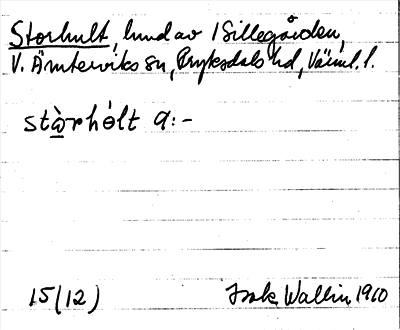 Storhult, hmd av 1 Sillegården,
V. Ämterviks sn, Fryksdals hd, Värml. l.
stὰrhớlt a:-
15(12) Isak Wallin 1910